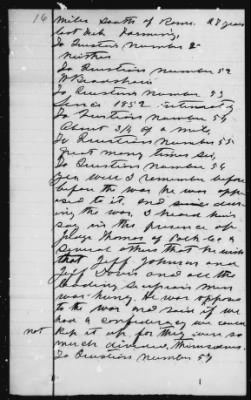 16
Miles South of Rome. 28 years
last Feb. Farming.
To Question Number 2
Neither
To Question Number 52
To Question Number 53
Since 1852 intimately
To Question Number 54
About 3/4 of a mile
To Question Number 55
Great many times Sir,
To Question Number 56
Yes, well I remember before
before the war he was oppo
sed to it, and since dur
ing the war, I heard him
say in the presence of
Thomas of Polk Co &
Several others that he wish
that Jeff Johnson and
Jeff Davis and all the
leading Secession men
was hung. He was oppose
to the war and said if we
had a confederacy we could
not
Kep it up for they were so
much divided, themselves.
To Question number 57